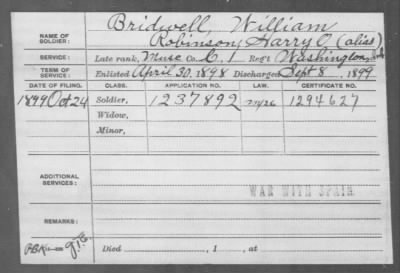 Bridwell, William
NAME OF SOLDIER: Robinson, Harry O (alias)
SERVICE: Late rank, Musc Co. C. 1 Reg't Washington Inf
TERM OF SERVICE: Enlisted April 30, 1898 Discharged Sept 8, 1899
DATE OF FILING. CLASS. APPLICATION NO. LAW. CERTIFICATE NO.
1899 Oct 24 Soldier, 1237892 1294627
Widow,
Minor,
ADDITIONAL SERVICES: WAR WITH SPAIN
REMARKS:
Died , 1 , at